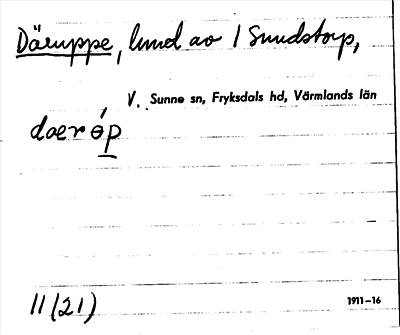 Däruppe, lund av 1 Sundstorp,
V. Sunne sn, Fryksdals hd, Värmlands län
daerɵ́p
11(21)
1911–16